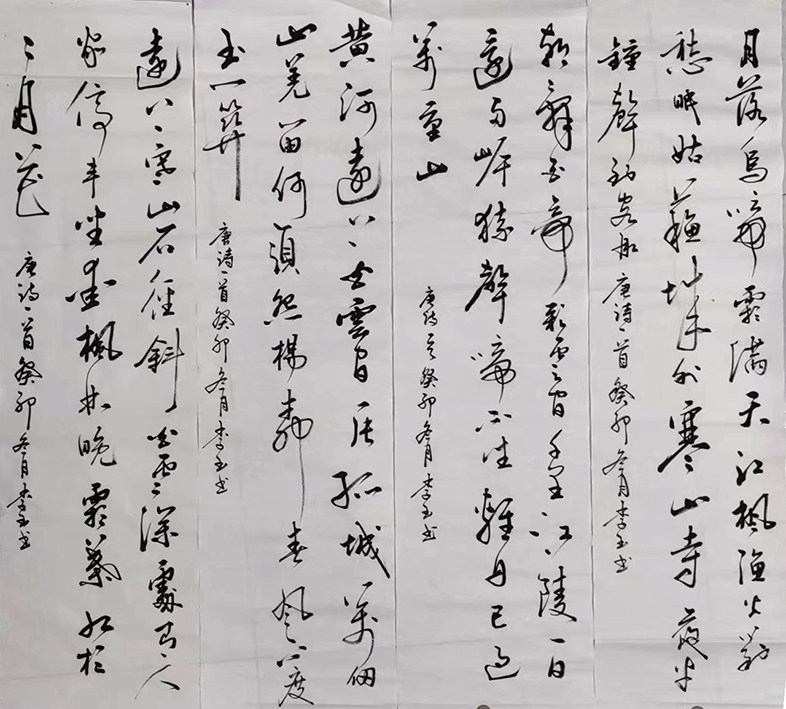 月落烏啼霜滿天江楓漁火對
愁眠姑蘇城外寒山寺夜半
鐘聲到客船 唐詩一首癸卯冬月李玉書
朝辭白帝彩雲間千里江陵一日
還兩岸猿聲啼不住輕舟已過
萬重山
唐詩一首癸卯冬月李玉書
黄河遠上白雲間一片孤城萬仞
山羌笛何須怨楊柳春風不度
玉門關
唐詩一首癸卯冬月李玉書
遠上寒山石徑斜白雲深處有人
家停車坐愛楓林晚霜葉紅於
二月花 唐詩一首癸卯冬月李玉書